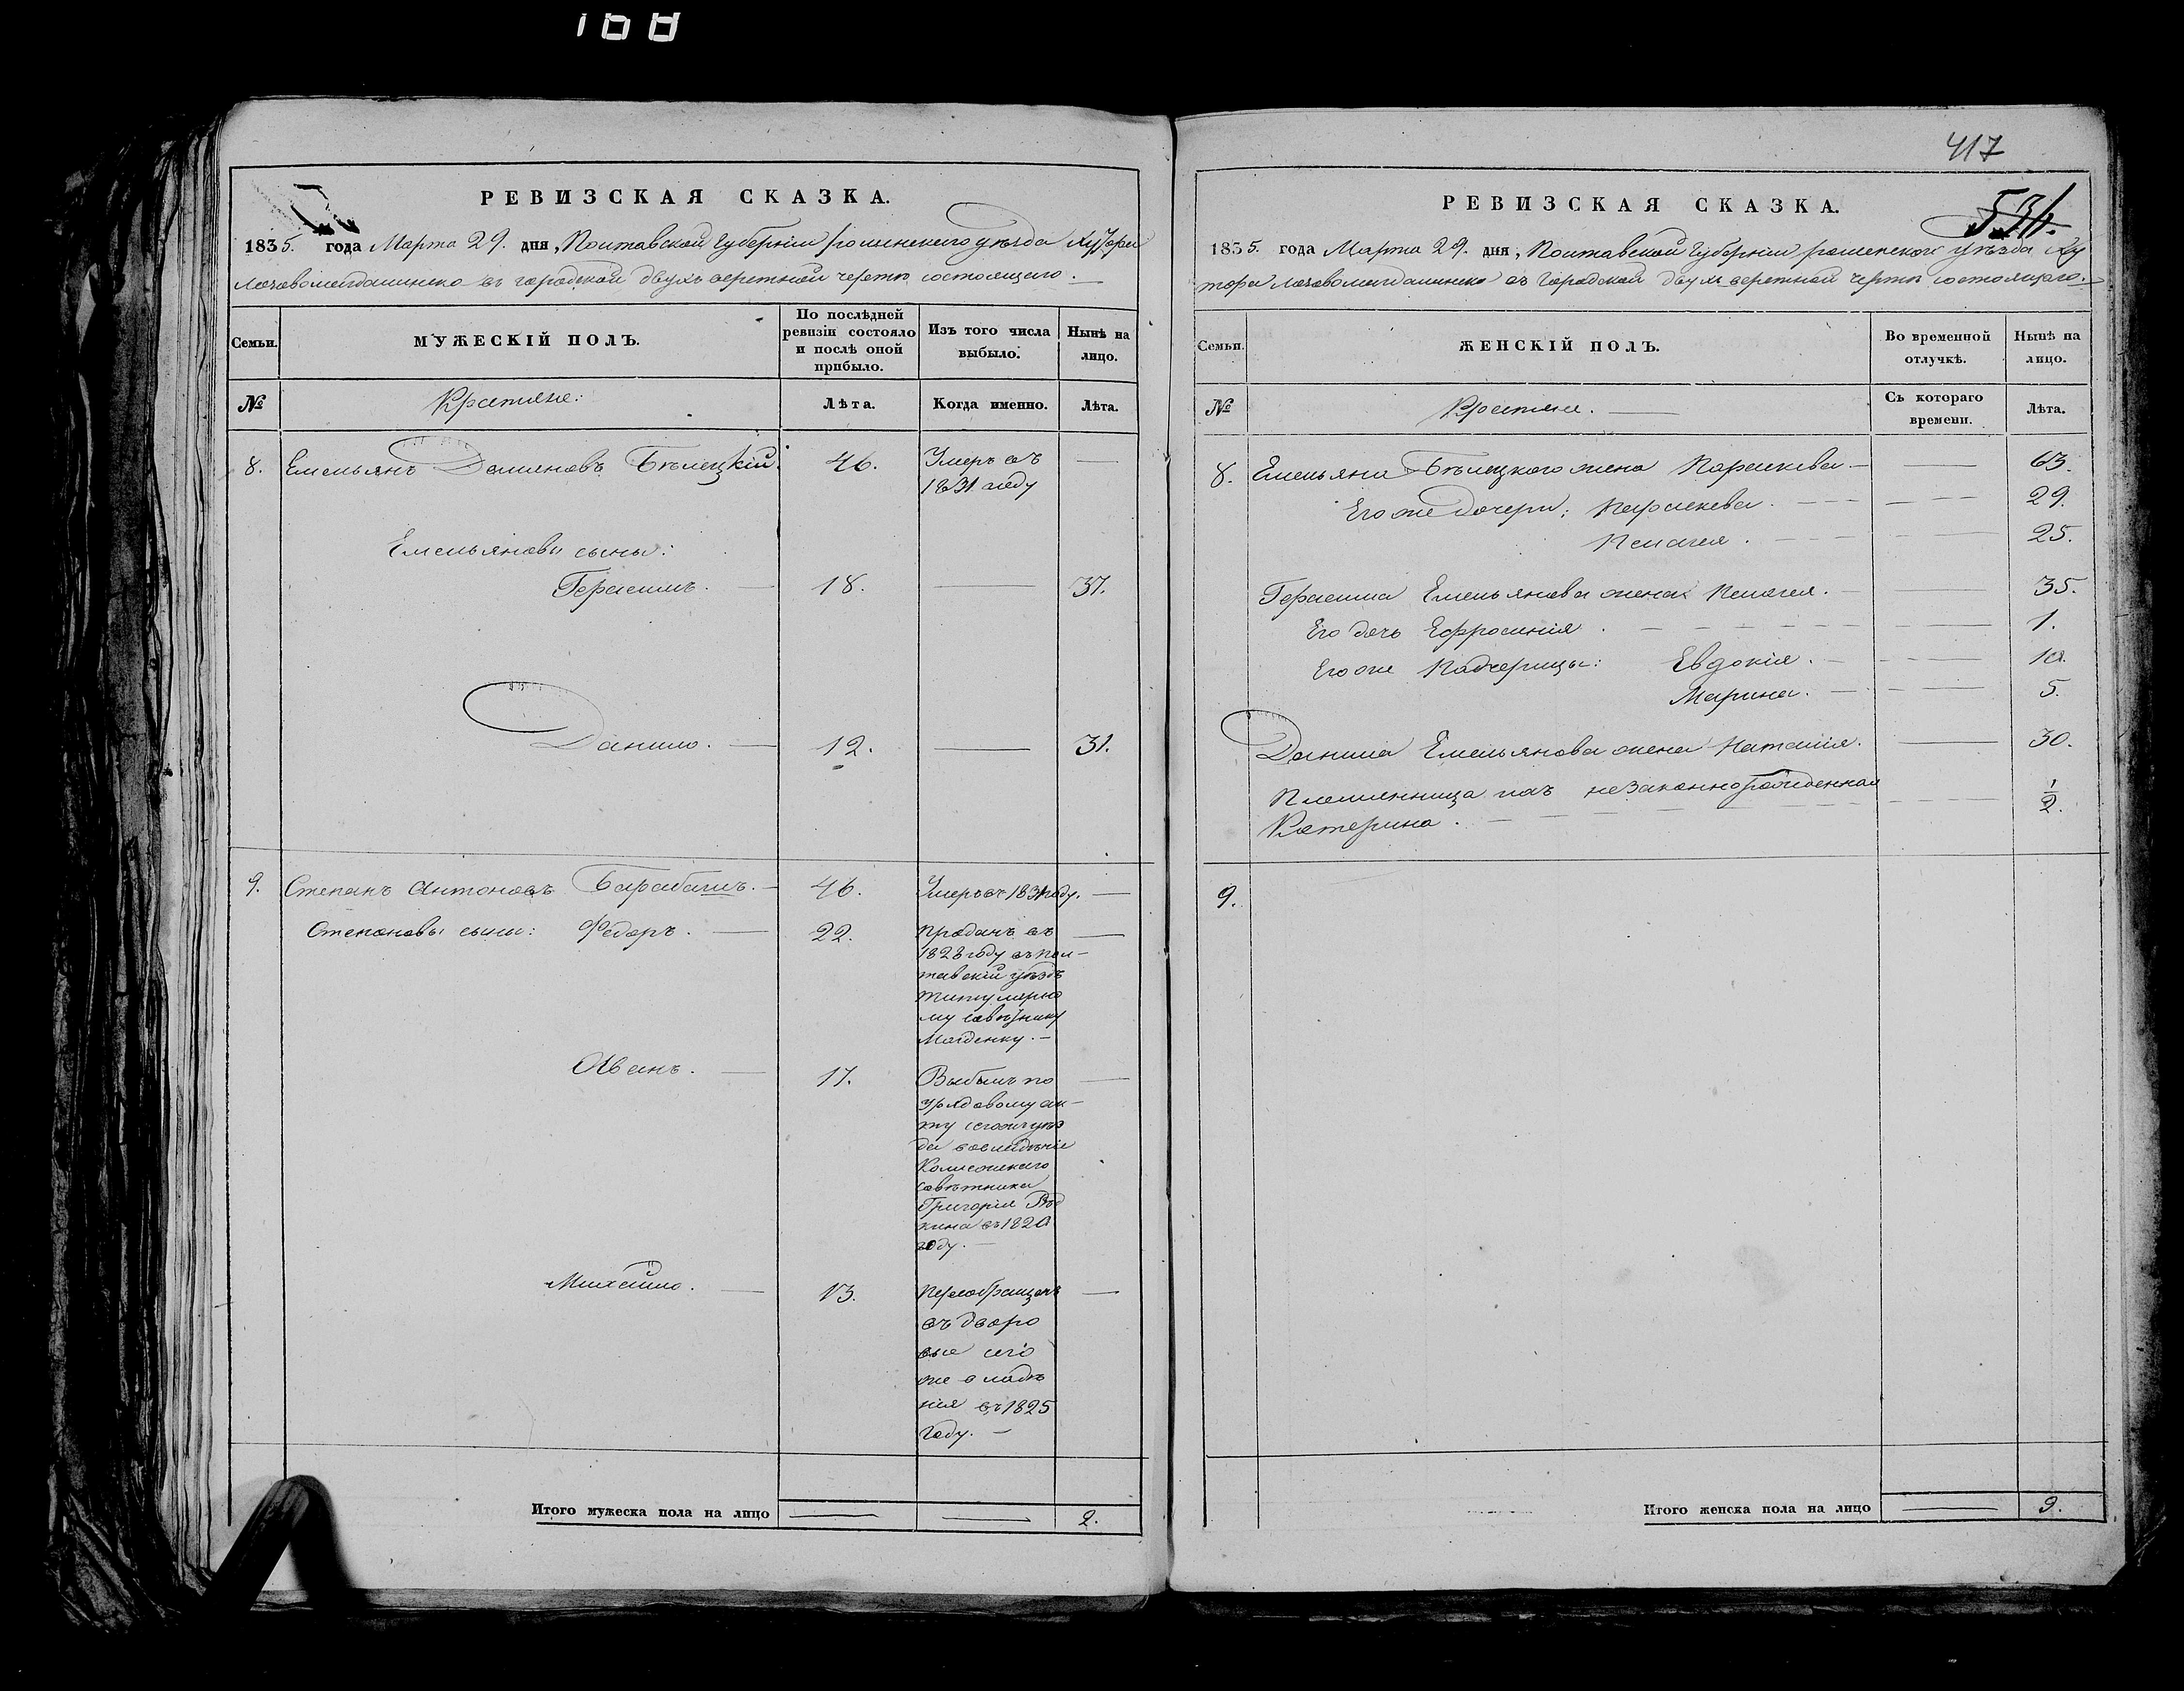 168
РЕВИЗСКАЯ СКАЗКА.
1835. года Марта 29. дня, Полтавской Губерніи роменского уѣзда Хутора
въ городской двухъ верстной чертѣ состоящего.
Семьи.
МУЖЕСКІЙ ПОЛЪ.
По послѣдней ревизіи состояло и послѣ оной прибыло.
Изъ того числа выбыло.
Нынѣ на лицо.
№
Крестяне:
Лѣта.
Когда именно.
Лѣта.
8. Емельянъ Демяновъ Бѣлецкій. 46. Умеръ въ —
1831 году
Емельяновы сыны:
Герасимъ. — 18. — 37.
Данило. — 12. — 31.
9. Степанъ Антоновъ Барабашъ. — 46. Умеръ въ 1831 году. —
Степановы сыны: Федоръ. — 22. Проданъ въ —
1828 году въ Пол-
тавскій уѣздъ
титулярно
му совѣтнику
Магденку. —
Иванъ. — 17. Выбылъ по —
урядовому ак-
ту сегожъ уѣз
да вовладѣніе
Колежского
совѣтника
Григорія
въ 1820
году. —
Михайло. — 13. Переобращенъ —
въ дворо
вые сего
же владѣ
нія въ 1825
году. —
Итого мужеска пола на лицо — — 2.
417
531.
РЕВИЗСКАЯ СКАЗКА.
1835. года Марта 29. дня, Полтавской Губерніи роменского уѣзда Ху
тора въ Городской двухъ верстной чертѣ состоящаго.
Семьи.
ЖЕНСКІЙ ПОЛЪ.
Во временной отлучкѣ.
Нынѣ на лицо.
№
Крестяне. —
Съ котораго времени.
Лѣта.
8. Емельяна Бѣлецкого жена Параскева — — 63.
Его же дочери: Параскева. — — 29.
Пелагея. — — 25.
Герасима Емельянова жена Пелагея. — — 35.
Его дочь Ефросинія. — — 1.
Его же Падчерицы: Евдокія. — — 10.
Марина. — — 5.
Данила Емельянова жена Наталія. — 30.
Племянница ихъ незаконнорожденная
Катерина. — — 1/2.
9.
Итого женска пола на лицо — 9.